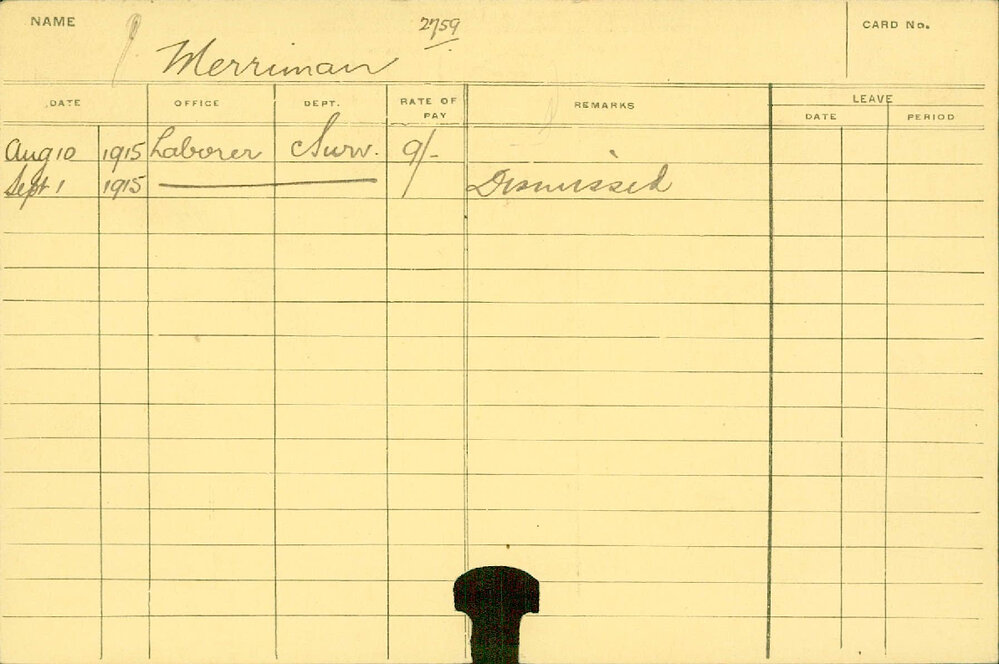 NAME 2759 CARD No.
Merriman
DATE OFFICE DEPT. RATE OF PAY REMARKS LEAVE
DATE PERIOD
Aug 10 1915 Laborer Surv. 9/-
Sept 1 1915 Dismissed